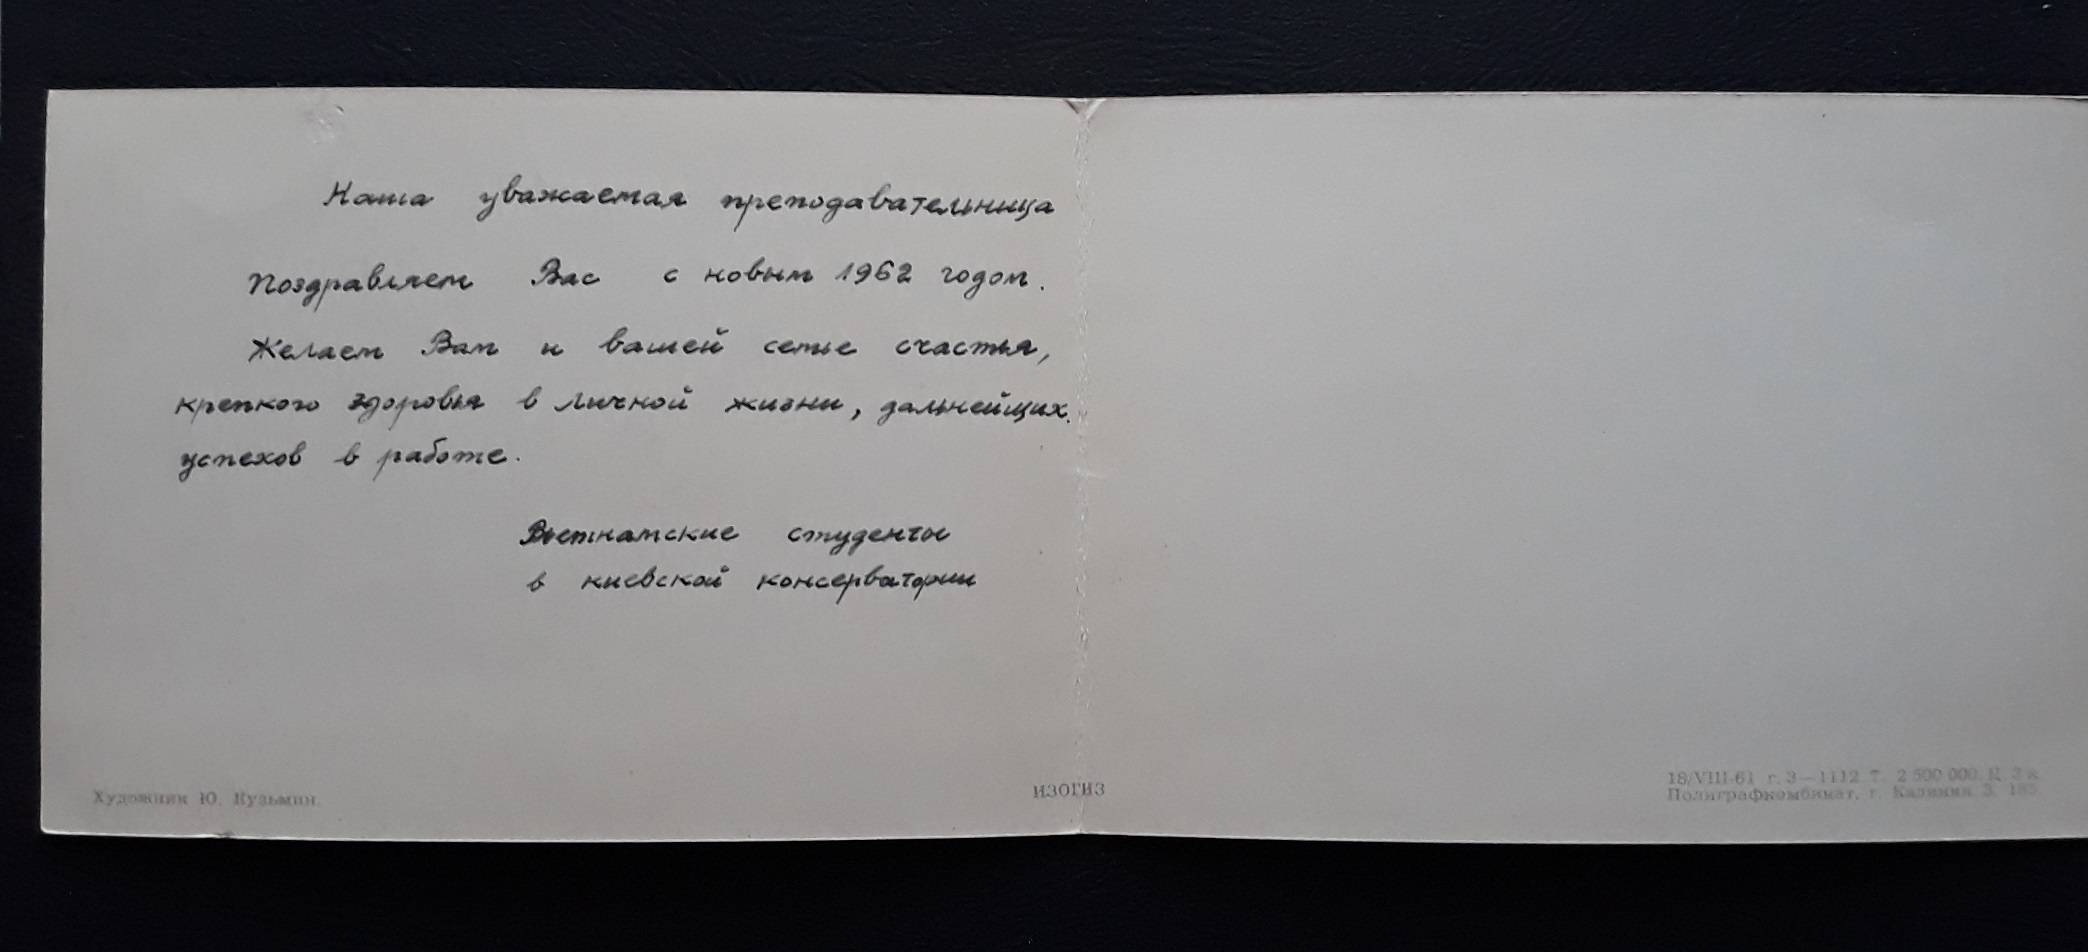 Наша уважаемая преподавательница
Поздравляем Вас с новым 1962 годом.
Желаем Вам и вашей семье счастья,
крепкого здоровья в личной жизни, дальнейщих
успехов в работе.
Вьетнамские студенты
в киевской консерватории
Художник Ю. Кузьмин.
ИЗОГИЗ
18/VIII-61 г. З—1112 Т. 2 500 000. Ц. 3 к.
Полиграфкомбинат, г. Калинин З. 185.